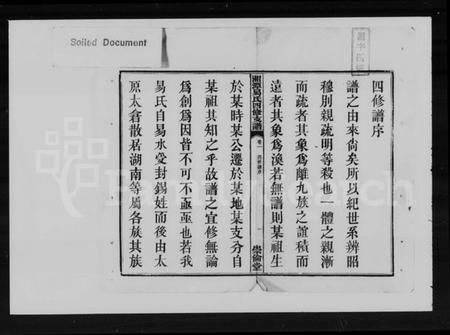 Soiled Document
四修譜序
譜之由來尙矣所以紀世系辨昭
穆別親疏明等殺也一體之親漸
而疏者其象爲離九族之誼積而
遠者其象爲渙若無譜則某祖生
湘潭易氏四修支譜
卷一 四修譜序
一
學倫堂
於某時某公遷於某地某支分自
某祖其知之乎故譜之宜修無論
爲創爲因皆不可不亟亟也若我
易氏自易水受封錫姓而後由太
原太倉散居湖南等屬各族其族